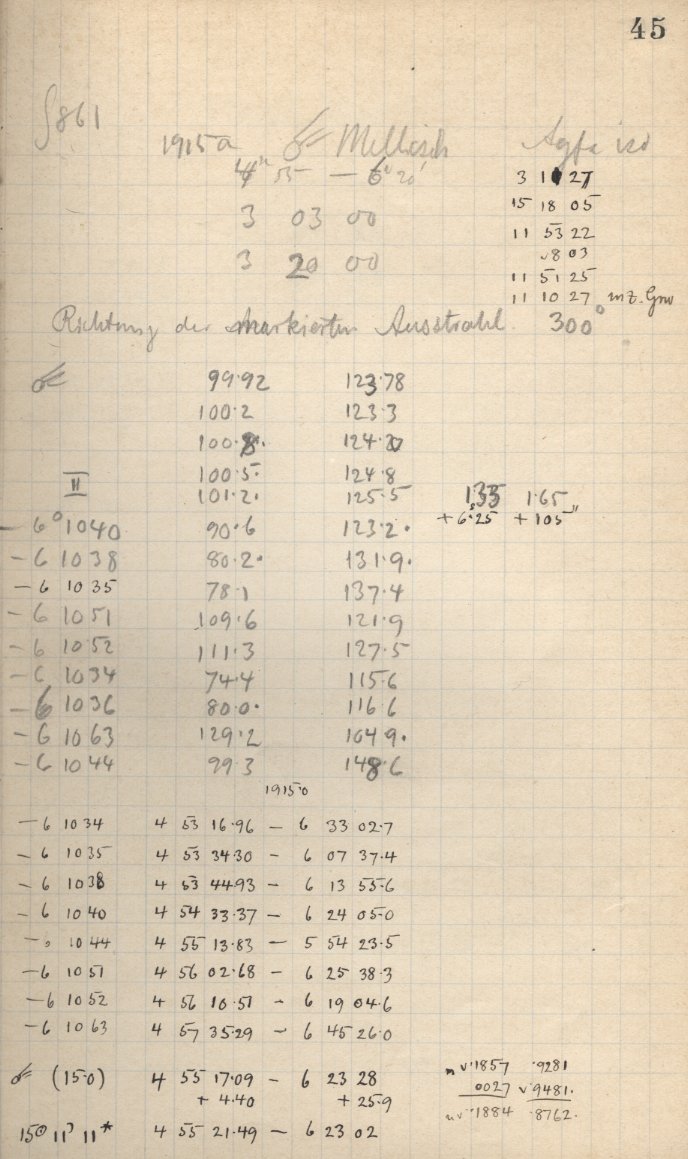 45
§861
1915a ☄ Mellisch Agfa iso
4ʰ 55 — 6° 20′ 3 10 27
3 03 00 15 18 05
3 20 00 11 53 22
v8 03
11 51 25
11 10 27 mZ. Grw
Richtung der markierten Ausstrahl. 300°
☄ 99.92 123.78
100.2 123.3
100.8. 124.20
100.5. 124.8
II 101.2. 125.5 1.35 1.65
+6ˢ.25 +105″
—6° 1040 90.6 123.2.
—6 1038 80.2. 131.9.
—6 1035 78.1 137.4
—6 1051 109.6 121.9
—6 1052 111.3 127.5
—6 1034 74.4 115.6
—6 1036 80.0. 116.6
—6 1063 129.2 104.9.
—6 1044 99.3 148.6
1915.0
—6 1034 4 53 16.96 — 6 33 02.7
—6 1035 4 53 34.30 — 6 07 37.4
—6 1038 4 53 44.93 — 6 13 55.6
—6 1040 4 54 33.37 — 6 24 05.0
— 1044 4 55 13.83 — 5 54 23.5
—6 1051 4 56 02.68 — 6 25 38.3
—6 1052 4 56 10.51 — 6 19 04.6
—6 1063 4 57 35.29 — 6 45 26.0
☄ (15.0) 4 55 17.09 — 6 23 28 v.1857 .9281
+ 4.40 + 25.9 0027 v.9481.
v.1884 .8762.
15⊙ 11☽ 11* 4 55 21.49 — 6 23 02